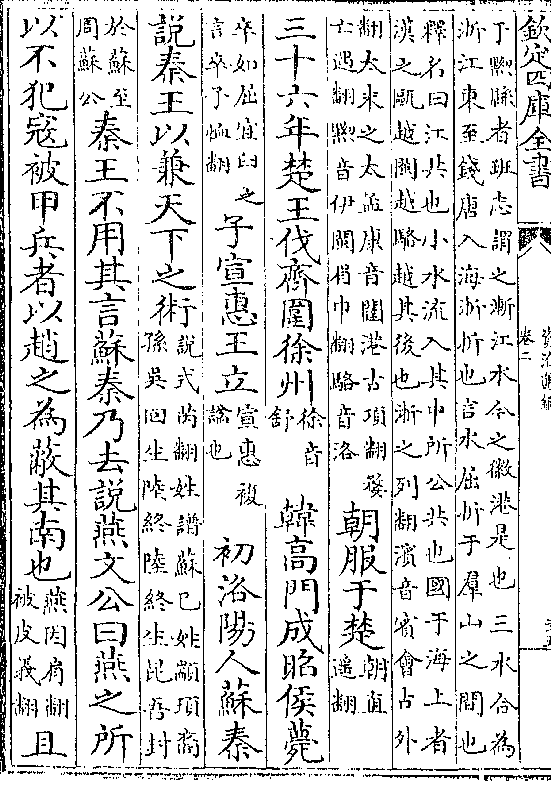 欽定四庫全書
資治通鑑
卷二
于黟縣者班志謂之漸江水今之徽港是也三水合為
浙江東至錢唐入海浙折也言水屈折于羣山之間也
釋名曰江共也小水流入其中所公共也國于海上者
漢之甌越閩越駱越其後也浙之列翻濱音賓會古外
翻太末之太孟康音闥港古項翻婺
亡遇翻黟音伊閩眉巾翻駱音洛
朝服于楚
朝直
遙翻
三十六年楚王伐齊圍徐州
徐音
舒
韓高門成昭侯薨
卒如屈宜臼之
言卒子恤翻
子宣惠王立
宣惠複
諡也
初洛陽人蘇秦
說秦王以兼天下之術
說式芮翻姓譜蘇已姓顓頊裔
孫吳回生陸終陸終生昆吾封
於蘇至
周蘇公
秦王不用其言蘇秦乃去說燕文公曰燕之所
以不犯寇被甲兵者以趙之為蔽其南也
燕因肩翻
被皮義翻
且